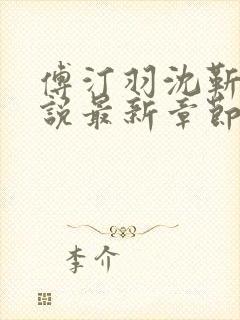 傅汀羽沈靳
說最新章節
李介